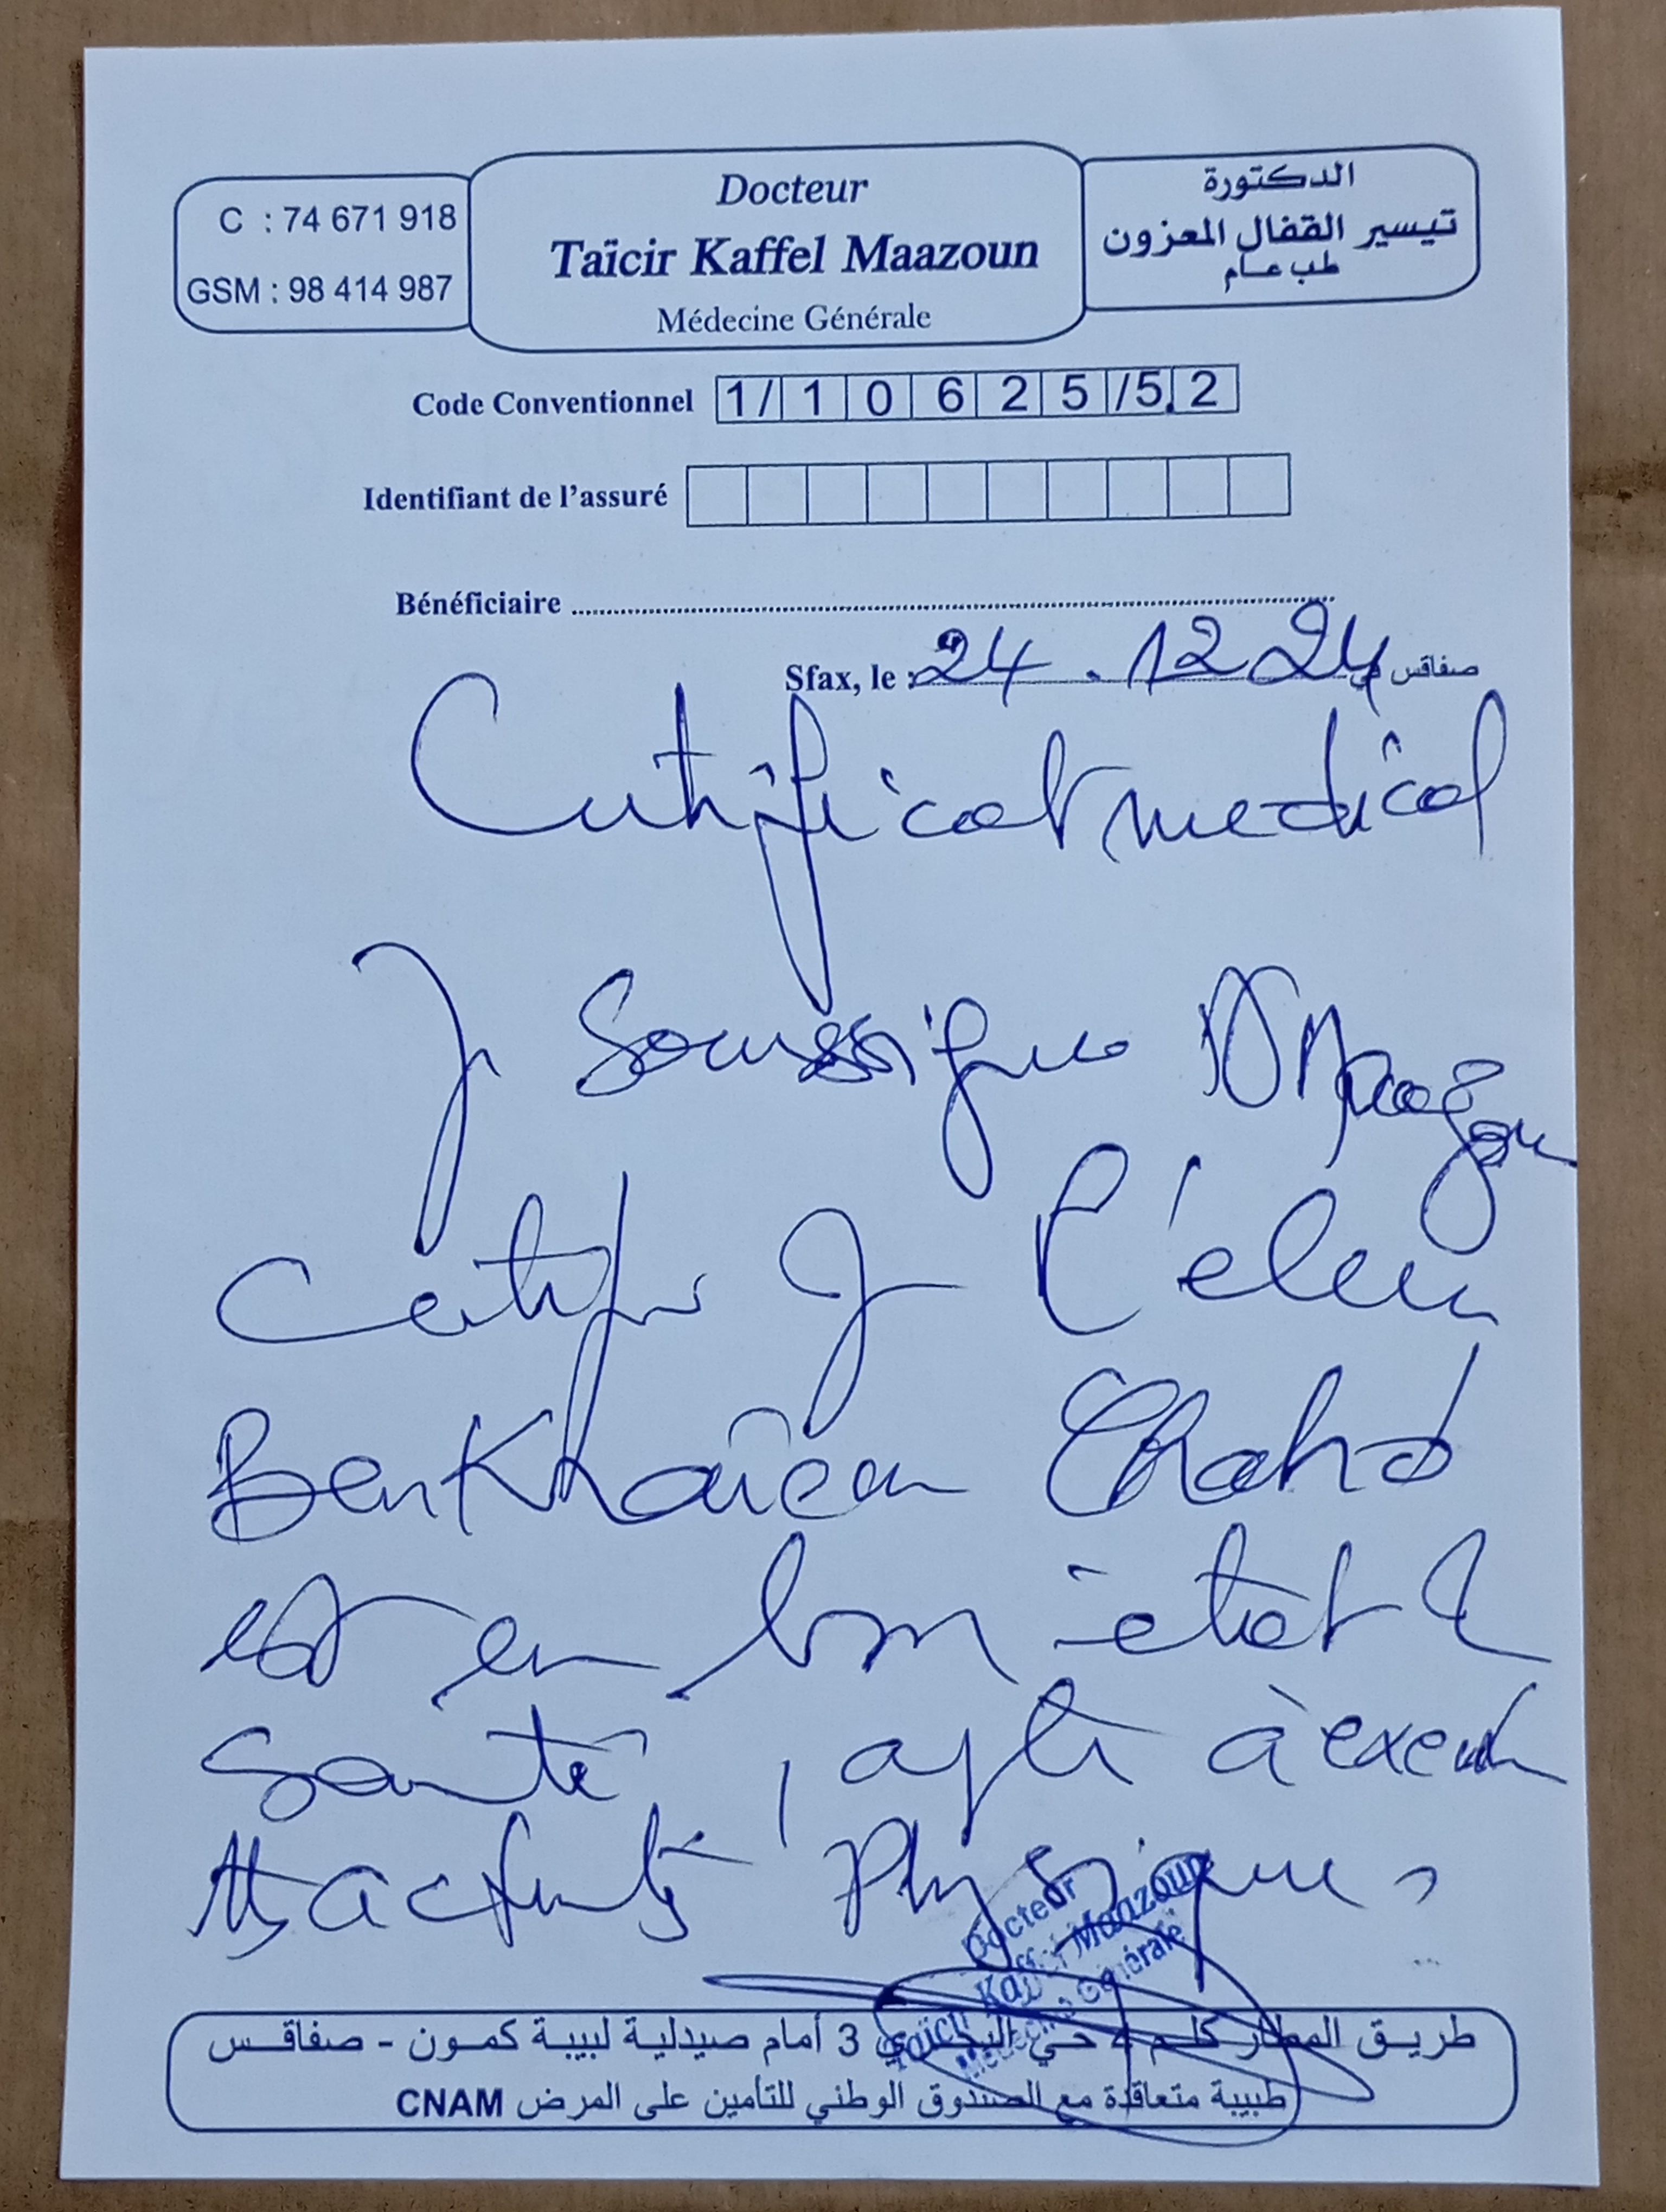 C : 74 671 918
GSM : 98 414 987
Docteur
Taïcir Kaffel Maazoun
Médecine Générale
الدكتورة
تيسير القفال المعزون
طب عام
Code Conventionnel 1/10625/52
Identifiant de l'assuré
Bénéficiaire
Sfax, le : 24.12 24 صفاقس في
Certificat medical
Je Soussigné Dr Maazoun
Certifie que l'élève
Ben Khaîem Chahd
est en bon état de
santé, apte à exercer
activités Physiques
Docteur
Taïcir Kaffel Maazoun
Médecine Générale
طريق المطار كلم 4 حي البحتري 3 أمام صيدلية لبيبة كمون - صفاقس
طبيبة متعاقدة مع الصندوق الوطني للتأمين على المرض CNAM